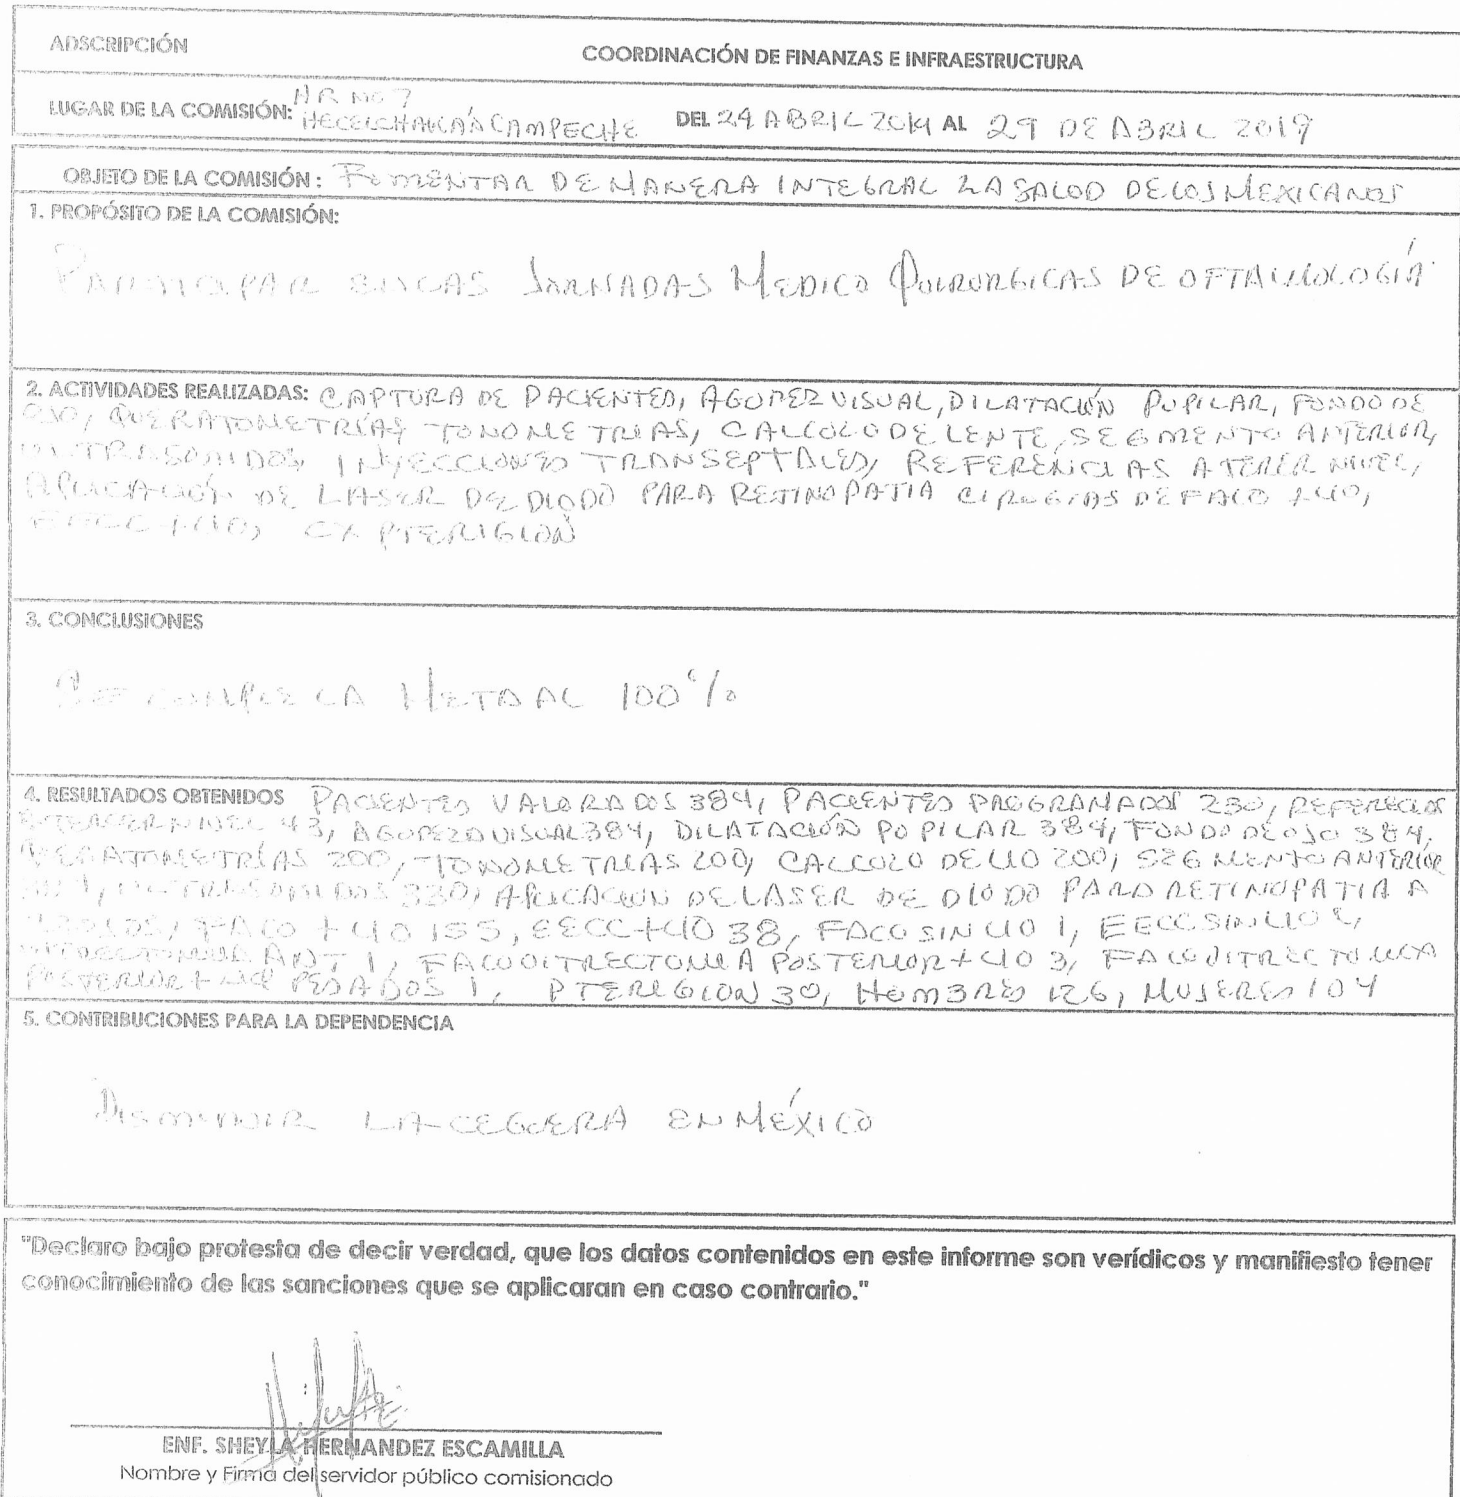 ADSCRIPCIÓN COORDINACIÓN DE FINANZAS E INFRAESTRUCTURA
HR
LUGAR DE LA COMISIÓN: CAMPECHE DEL 24 ABRIL 2019 AL 29 DE ABRIL 2019
OBJETO DE LA COMISIÓN : FOMENTAR DE MANERA INTEGRAL LA SALUD DE LOS MEXICANOS
1. PROPÓSITO DE LA COMISIÓN:
PARTICIPAR JORNADAS MEDICO QUIRURGICAS DE OFTALMOLOGÍA
2. ACTIVIDADES REALIZADAS: CAPTURA DE PACIENTES, AGUDEZ VISUAL, DILATACIÓN PUPILAR, FONDO DE
OJO, QUERATOMETRÍAS TONOMETRIAS, CALCULO DE LENTE, SEGMENTO ANTERIOR,
ULTRASONIDOS, INYECCIONES TRANSEPTALES, REFERENCIAS A TERCER NIVEL,
APLICACIÓN DE LASER DE DIODO PARA RETINOPATIA CIRUGIAS DE FACO + LIO,
EECC + LIO, CX PTERIGION
3. CONCLUSIONES
SE CUMPLE LA META AL 100%
4. RESULTADOS OBTENIDOS PACIENTES VALORADOS 384, PACIENTES PROGRAMADOS 230, REFERENCIAS
A TERCER NIVEL 43, AGUDEZA VISUAL 384, DILATACIÓN PUPILAR 384, FONDO DE OJO 384,
QUERATOMETRÍAS 200, TONOMETRIAS 200, CALCULO DE LIO 200, SEGMENTO ANTERIOR
ULTRASONIDOS 330, APLICACION DE LASER DE DIODO PARA RETINOPATIA A
FACO + LIO 155, EECC + LIO 38, FACO SIN LIO 1, EECC SIN LIO
VITRECTOMIA ANT 1, FACOVITRECTOMIA POSTERIOR + LIO 3, FACOVITRECTOMIA
POSTERIOR + PESADOS 1, PTERIGION 30, HOMBRES 126, MUJERES 104
5. CONTRIBUCIONES PARA LA DEPENDENCIA
DISMINUIR LA CEGUERA EN MÉXICO
"Declaro bajo protesta de decir verdad, que los datos contenidos en este informe son verídicos y manifiesto tener
conocimiento de las sanciones que se aplicaran en caso contrario."
ENF. SHEYLA HERNANDEZ ESCAMILLA
Nombre y Firma del servidor público comisionado